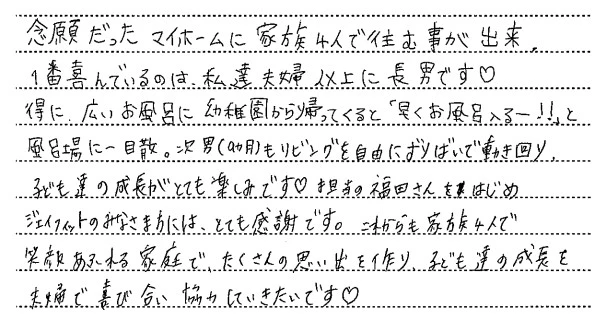 念願だった マイホームに 家族4人で住む事が出来、
1番喜んでいるのは、私達夫婦以上に長男です♡
得に、広いお風呂に幼稚園から帰ってくると「早くお風呂入るー!!」と
風呂場に一目散。次男(9ヶ月)もリビングを自由にずりばいで動き回り、
子ども達の成長がとても楽しみです♡ 担当の福田さんをはじめ
ジェイフィットのみなさま方には、とても感謝です。これからも家族4人で
笑顔あふれる家庭で、たくさんの思い出を作り、子ども達の成長を
夫婦で喜び合い協力していきたいです♡